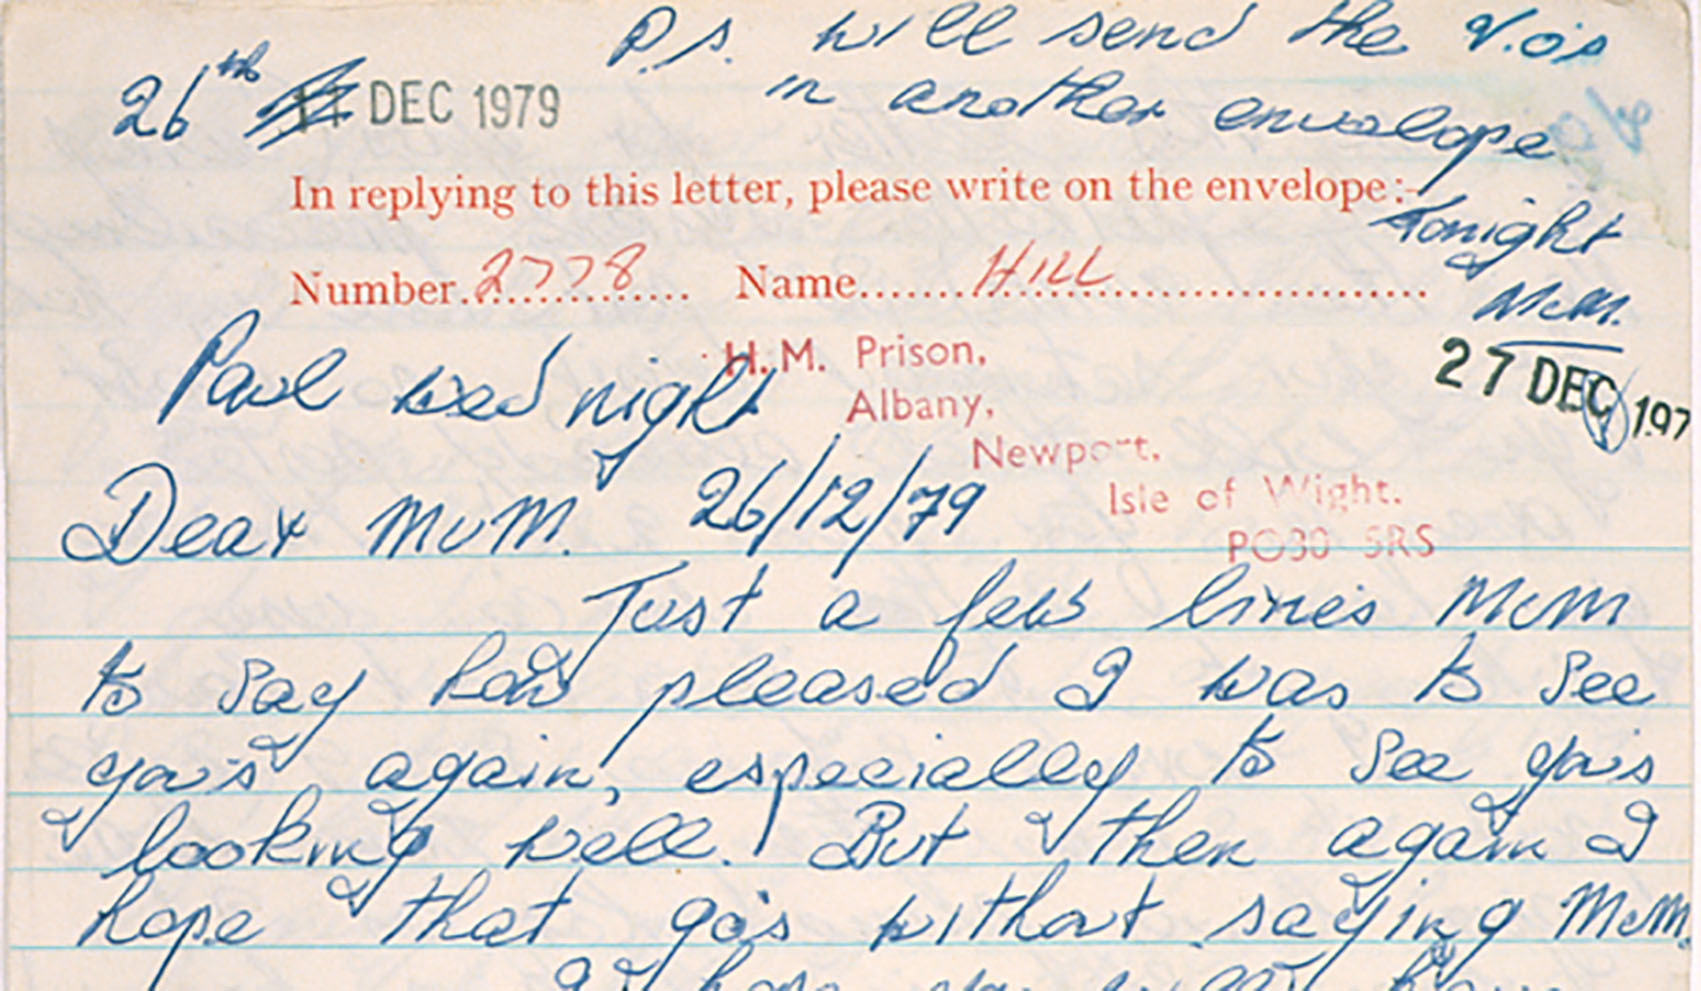 P.S. will send the V.O's
in another envelope
Tonight
26th 11 DEC 1979
In replying to this letter, please write on the envelope:-
Number 2778 Name HILL
27 DEC 197
H.M. Prison,
Albany,
Newport,
Isle of Wight.
PO30 5RS
Paul wed night
Dear MUM. 26/12/79
Just a few lines MUM
to say how pleased I was to see
you's again, especially to see you's
looking well. But then again I
hope that go's without saying MUM.
I hope you